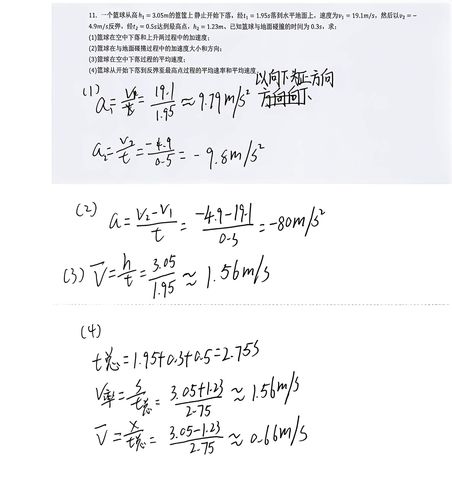 11. 一个篮球从高h₁ = 3.05m的篮筐上静止开始下落，经t₁ = 1.95s落到水平地面上，速度为v₁ = 19.1m/s，然后以v₂ = -
4.9m/s反弹，经t₂ = 0.5s达到最高点，h₂ = 1.23m，已知篮球与地面碰撞的时间为0.3s，求：
(1)篮球在空中下落和上升两过程中的加速度；
(2)篮球在与地面碰撞过程中的加速度大小和方向；
(3)篮球在空中下落过程的平均速度；
(4)篮球从开始下落到反弹至最高点过程的平均速率和平均速度
以向下为正方向
(1)
a₁=v₁/t=19.1/1.95≈9.79m/s²
a₂=v₂/t=-4.9/0.5=-9.8m/s²
(2) a=(v₂-v₁)/t=(-4.9-19.1)/0.3=-80m/s²
(3) v̅=h/t=3.05/1.95≈1.56m/s
(4)
t总=1.95+0.3+0.5=2.75s
v率=s/t总=(3.05+1.23)/2.75≈1.56m/s
v̅=x/t总=(3.05-1.23)/2.75≈0.66m/s